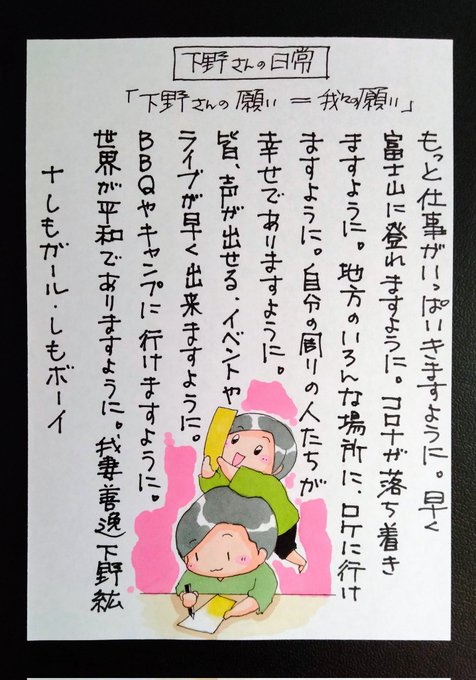 下野さんの日常
「下野さんの願い＝我々の願い」
もっと仕事がいっぱいきますように。早く
富士山に登れますように。コロナが落ち着き
ますように。地方のいろんな場所に、ロケに行け
ますように。自分の周りの人たちが
幸せでありますように。
皆、声が出せる、イベントや
ライブが早く出来ますように。
BBQやキャンプに行けますように。
世界が平和でありますように。我妻善逸下野紘
＋しもガール・しもボーイ